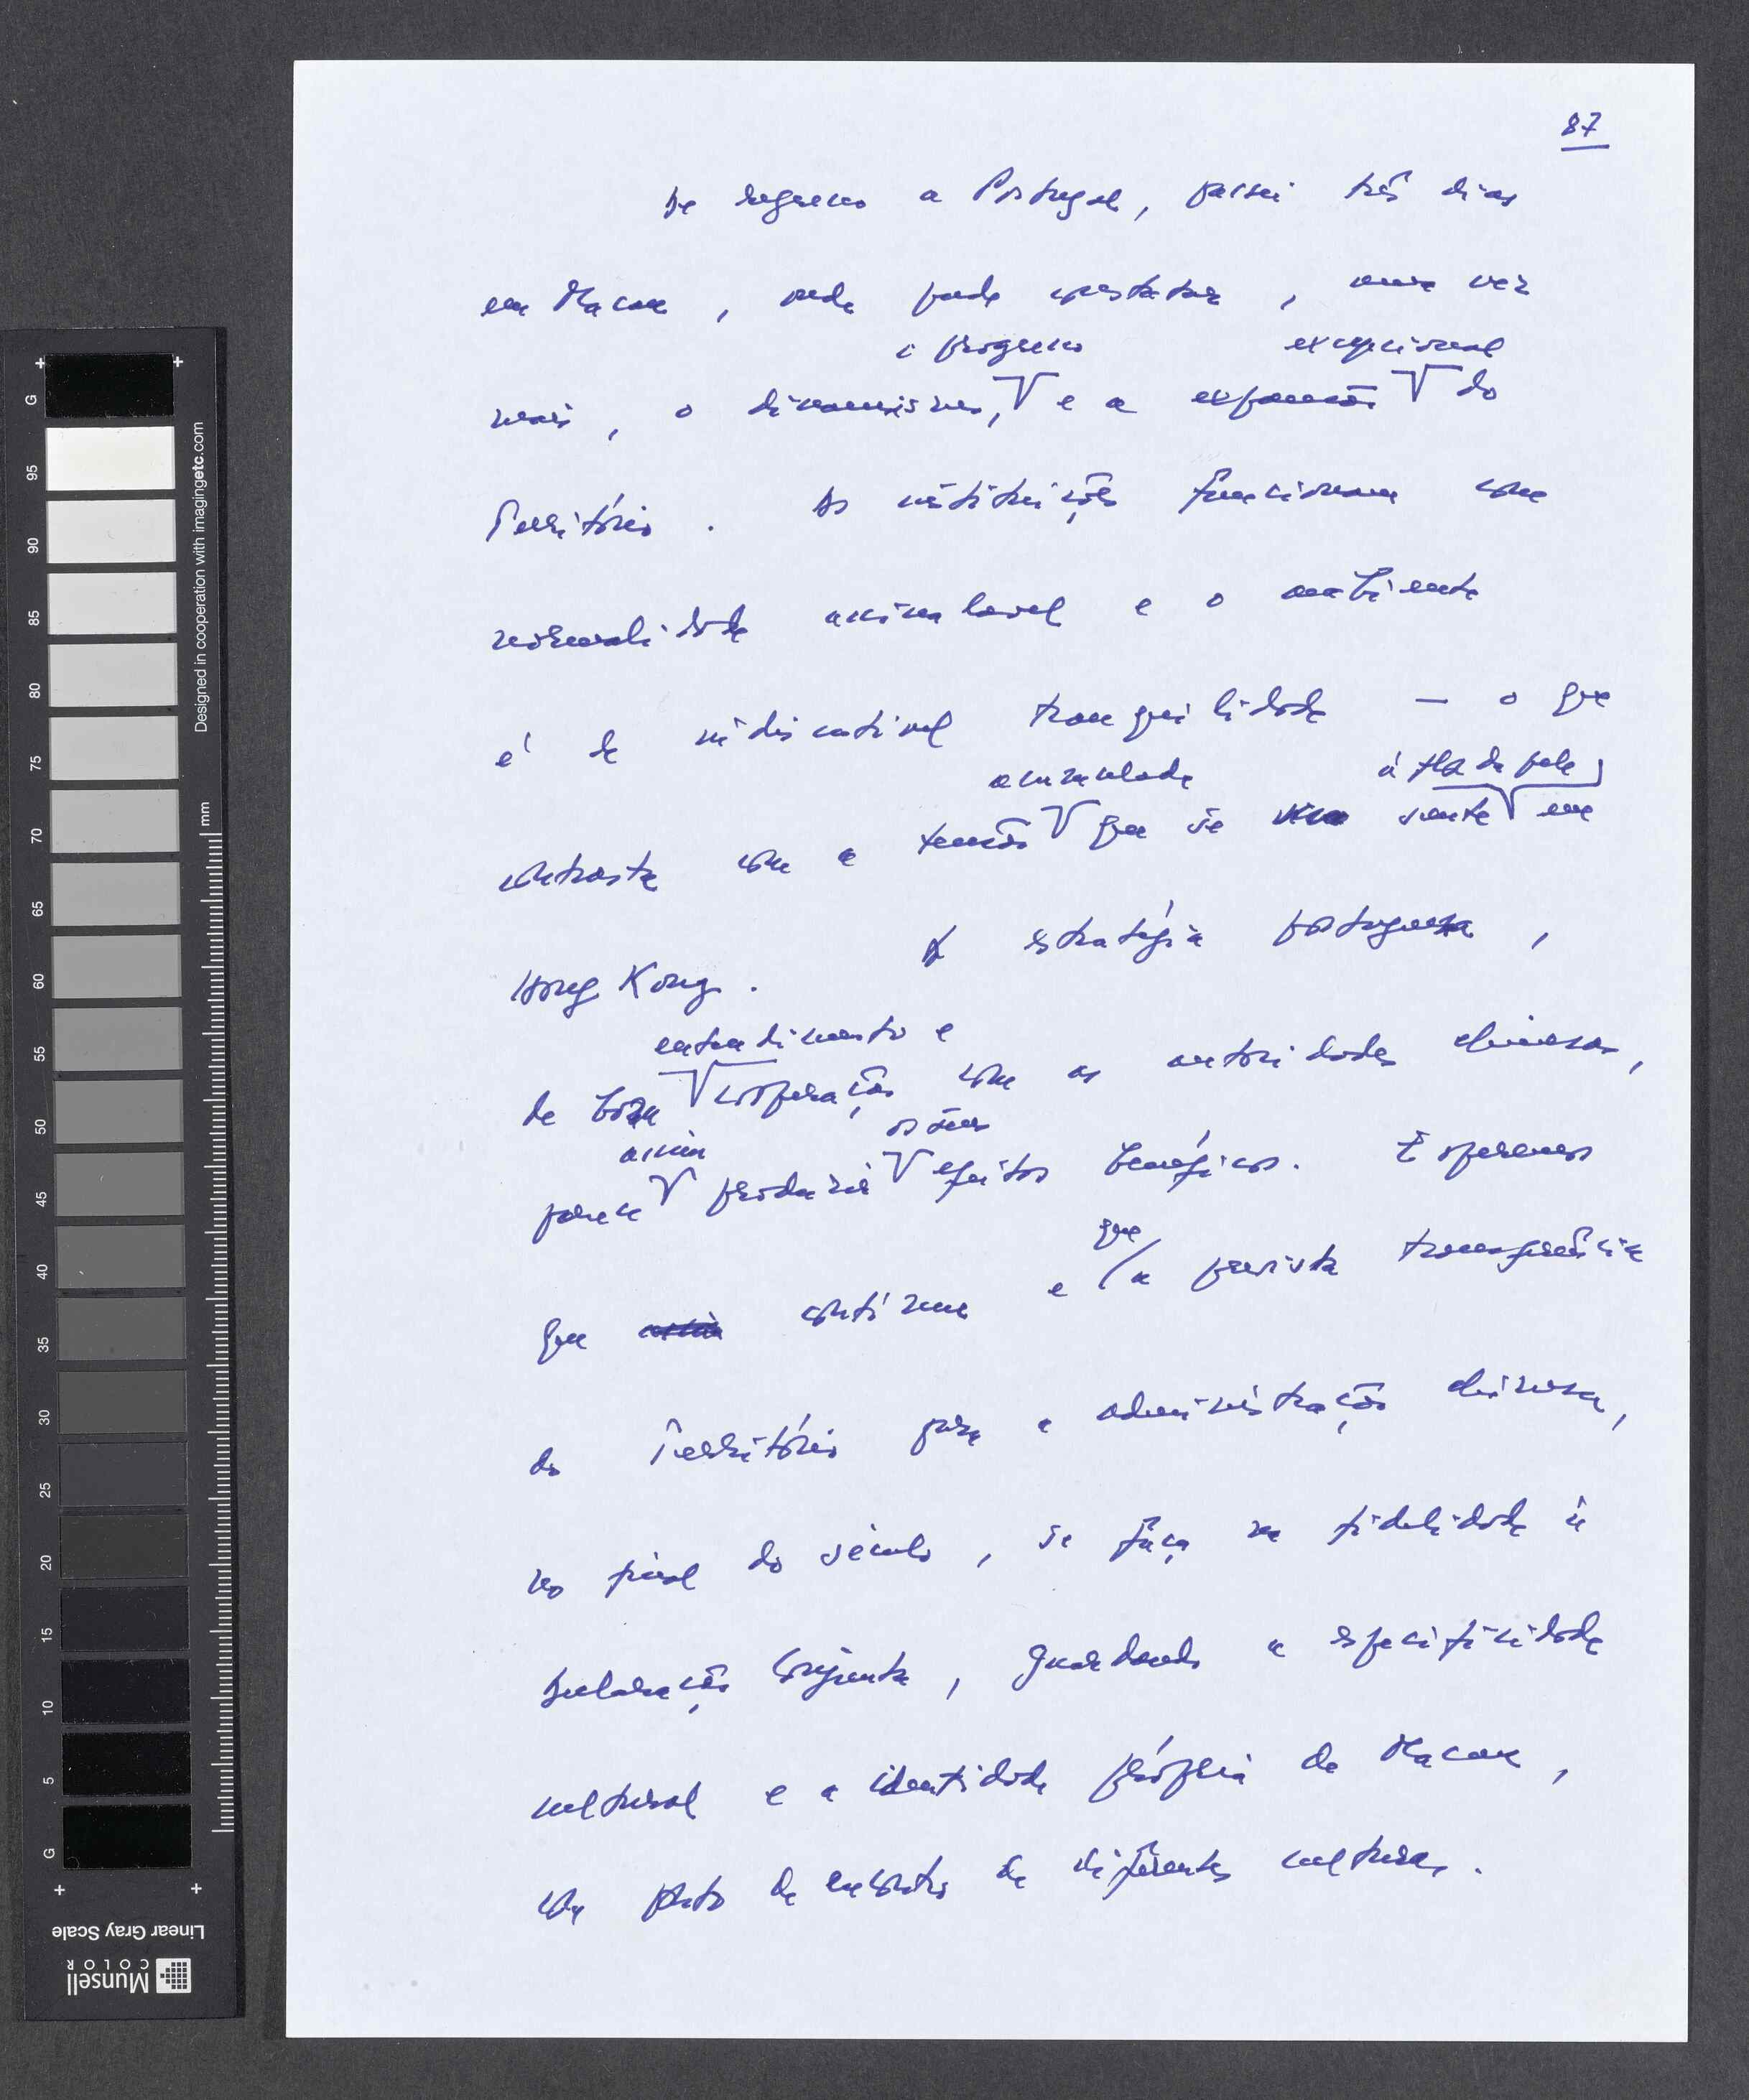 87
De regresso a Portugal, passei três dias
em Macau, onde pude constatar, uma vez
o progresso excepcional
mais, o dinamismo, e a expansão do
Território. As instituições funcionam com
normalidade assinalável e o ambiente
é de indiscutível tranquilidade — o que
acumulada à flor da pele
contrasta com a tensão que se sente em
Hong Kong. A estratégia portuguesa,
entendimento e
de boa cooperação com as autoridades chinesas,
assim os seus
parece produzir efeitos benéficos. Esperemos
que
que assim continue e a prevista transferência
do Território para a administração chinesa,
no final do século, se faça na fidelidade à
Declaração Conjunta, guardando a especificidade
cultural e a identidade própria de Macau,
como ponto de encontro de diferentes culturas.
Designed in cooperation with imagingetc.com
mm
G
95
90
85
80
75
70
65
60
55
50
45
40
35
30
25
20
15
10
5
G
Linear Gray Scale
Munsell
COLOR